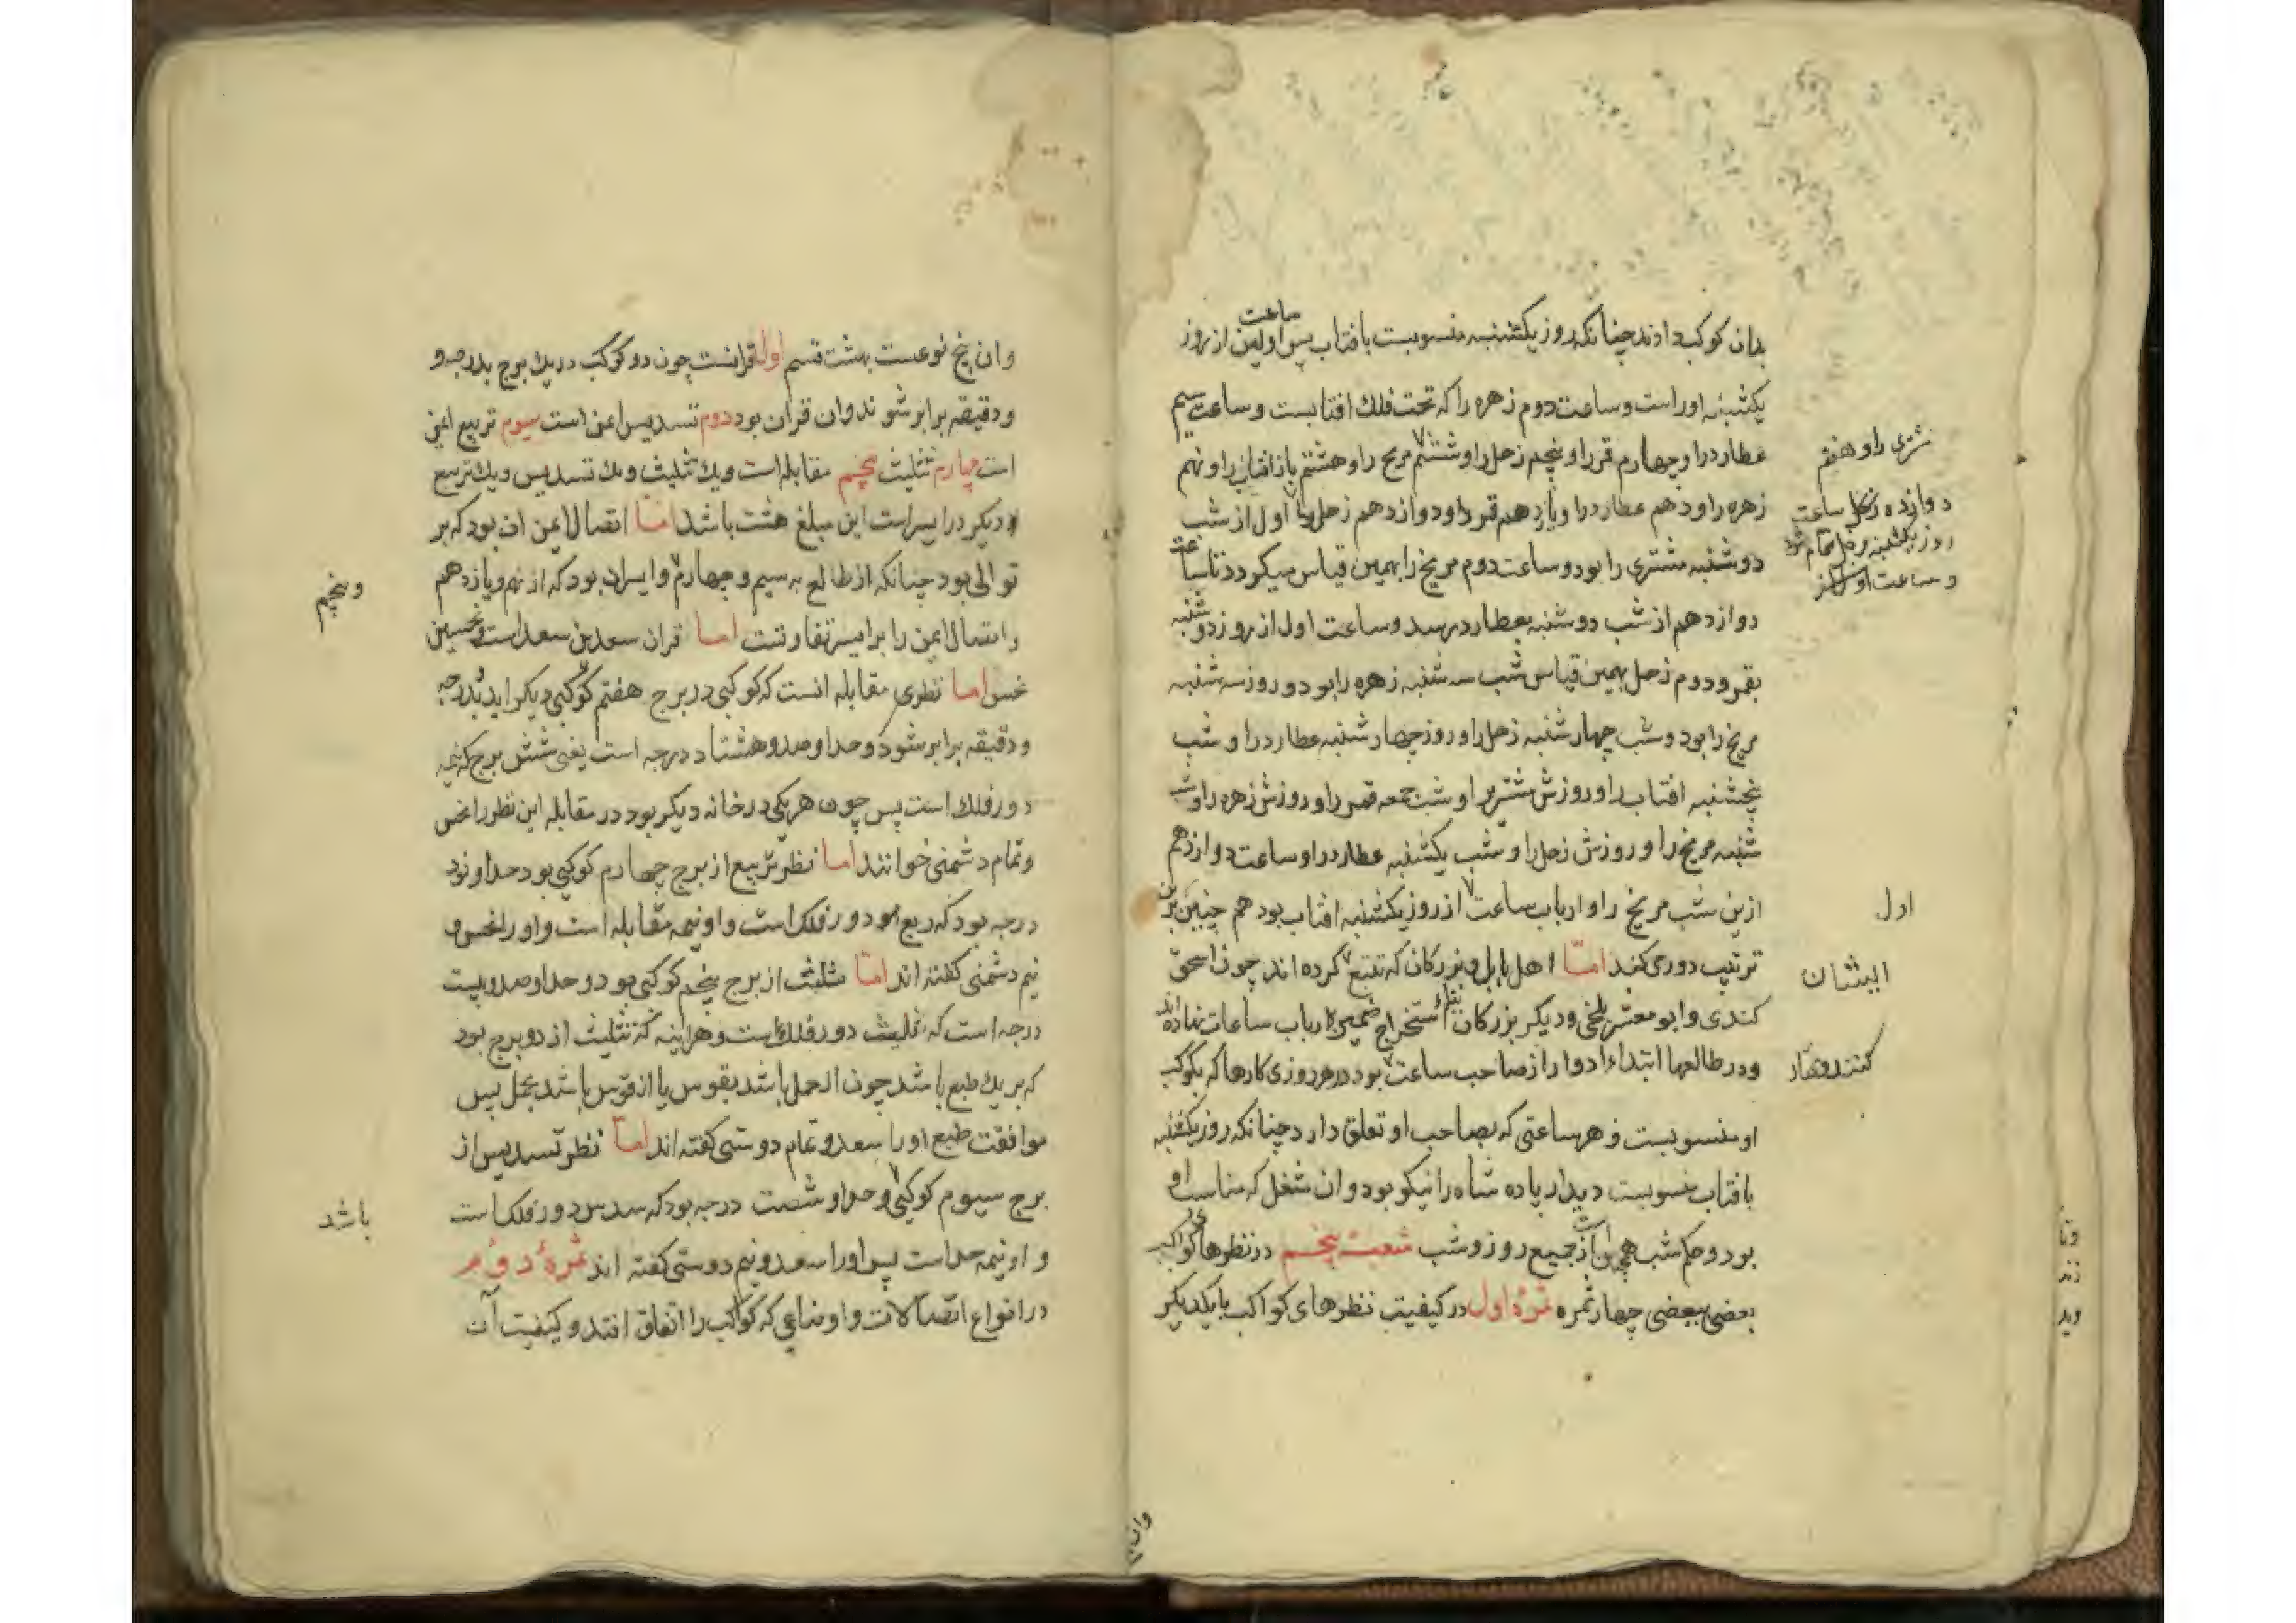 بدان کوکب دادند چنانکه روز یکشنبه منسوبست بافتاب پس اولین ساعت از روز
یکشنبه اوراست و ساعت دوم زهره را که تحت فلک افتابست و ساعت سیم
عطارد را و چهارم قمر را و پنجم زحل را و ششم مریخ را و هشتم باز افتاب را و نهم
مشتری را و هفتم
زهره را و دهم عطارد را و یازدهم قمر را و دوازدهم زحل را اول از شب
دوازده زحل ساعت
روز یکشنبه بزحل تمام شود
و ساعت اول از
دوشنبه مشتری را بود و ساعت دوم مریخ را بهمین قیاس میکردد تا ساعت
دوازدهم از شب دوشنبه بعطارد رسد و ساعت اول از روز دوشنبه
بقمر و دوم زحل بهمین قیاس شب سه شنبه زهره را بود و روز سه شنبه
مریخ را بود و شب چهارشنبه زحل را و روز چهارشنبه عطارد را و شب
پنجشنبه افتاب را و روزش مشتری را و شب جمعه قمر را و روزش زهره را و شب
شنبه مریخ را و روزش زحل را و شب یکشنبه عطارد را و ساعت دوازدهم
ازین شب مریخ را و ارباب ساعت از روز یکشنبه افتاب بود هم چنین برین
اول
ترتیب دوری کند اما اهل بابل و بزرکان که تتبع کرده اند چون اسحق
ایشان
کندی و ابو معشر بلخی و دیکر بزرکان بناء استخراج ضمیر بارباب ساعات نهاده اند
و در طالعها ابتداء ادوار از صاحب ساعت بود در هر روزی کارها که بکوکب
کنند و هر
او منسوبست و هر ساعتی که بصاحب او تعلق دارد چنانکه روز یکشنبه
بافتاب منسوبست دیدار پاده شاه را نیکو بود و ان شغل که مناسب او
بود و حکم شب همچنین است از جمیع روز و شب شعبت پنجم در نظرهای کواکب
بعضی ببعضی چهار ثمره ثمرهٔ اول در کیفیت نظرهای کواکب با یکدیکر
وان
وان پنج نوعست بهشت قسم اول قرانست چون دو کوکب در یک برج بدرجه و
و دقیقه برابر شوند و ان قران بود دوم تسدیس ایمن است سیوم تربیع ایمن
است چهارم تثلیث پنجم مقابله است و یک تثلیث و یک تسدیس و یک تربیع
دیکر در ایسر است این مبلغ هشت باشد اما اتصال ایمن ان بود که بر
توالی بود چنانکه از طالع به سیم و چهارم و ایسر ان بود که از نهم و یازدهم
وپنجم
و اتصال ایمن را بر ایسر تفاوتست اما قران سعدین سعد است و نحسین
نحس اما نظر مقابله انست که کوکبی در برج هفتم کوکبی دیکر اید و بدرجه
و دقیقه برابر شود و حد او صد و هشتاد درجه است یعنی شش برج که نیمه
دور فلک است پس چون هر یکی در خانه دیکر بود در مقابله این نظر را نحس
و تمام دشمنی خوانند اما نظر تربیع از برج چهارم کوکبی بود حد او نود
درجه بود که ربع دور فلک است و او نیمه مقابله است و او را نحس و
نیم دشمنی کفته اند اما تثلیث از برج پنجم کوکبی بود و حد او صد و بیست
درجه است که ثلث دور فلک است و هر اینه که تثلیث از دو برج بود
که بر یک طبع باشد چون از حمل باشد بقوس یا از قوس باشد بحمل پس
موافقت طبع او را سعد و تمام دوستی کفته اند اما نظر تسدیس از
برج سیوم کوکبی و حد او شصت درجه بود که سدس دور فلک است
باشد
و او نیمه حد است پس او را سعد و نیم دوستی کفته اند ثمرهٔ دوم
در انواع اتصالات و اوضاعی که کواکب را اتفاق افتد و کیفیت آن